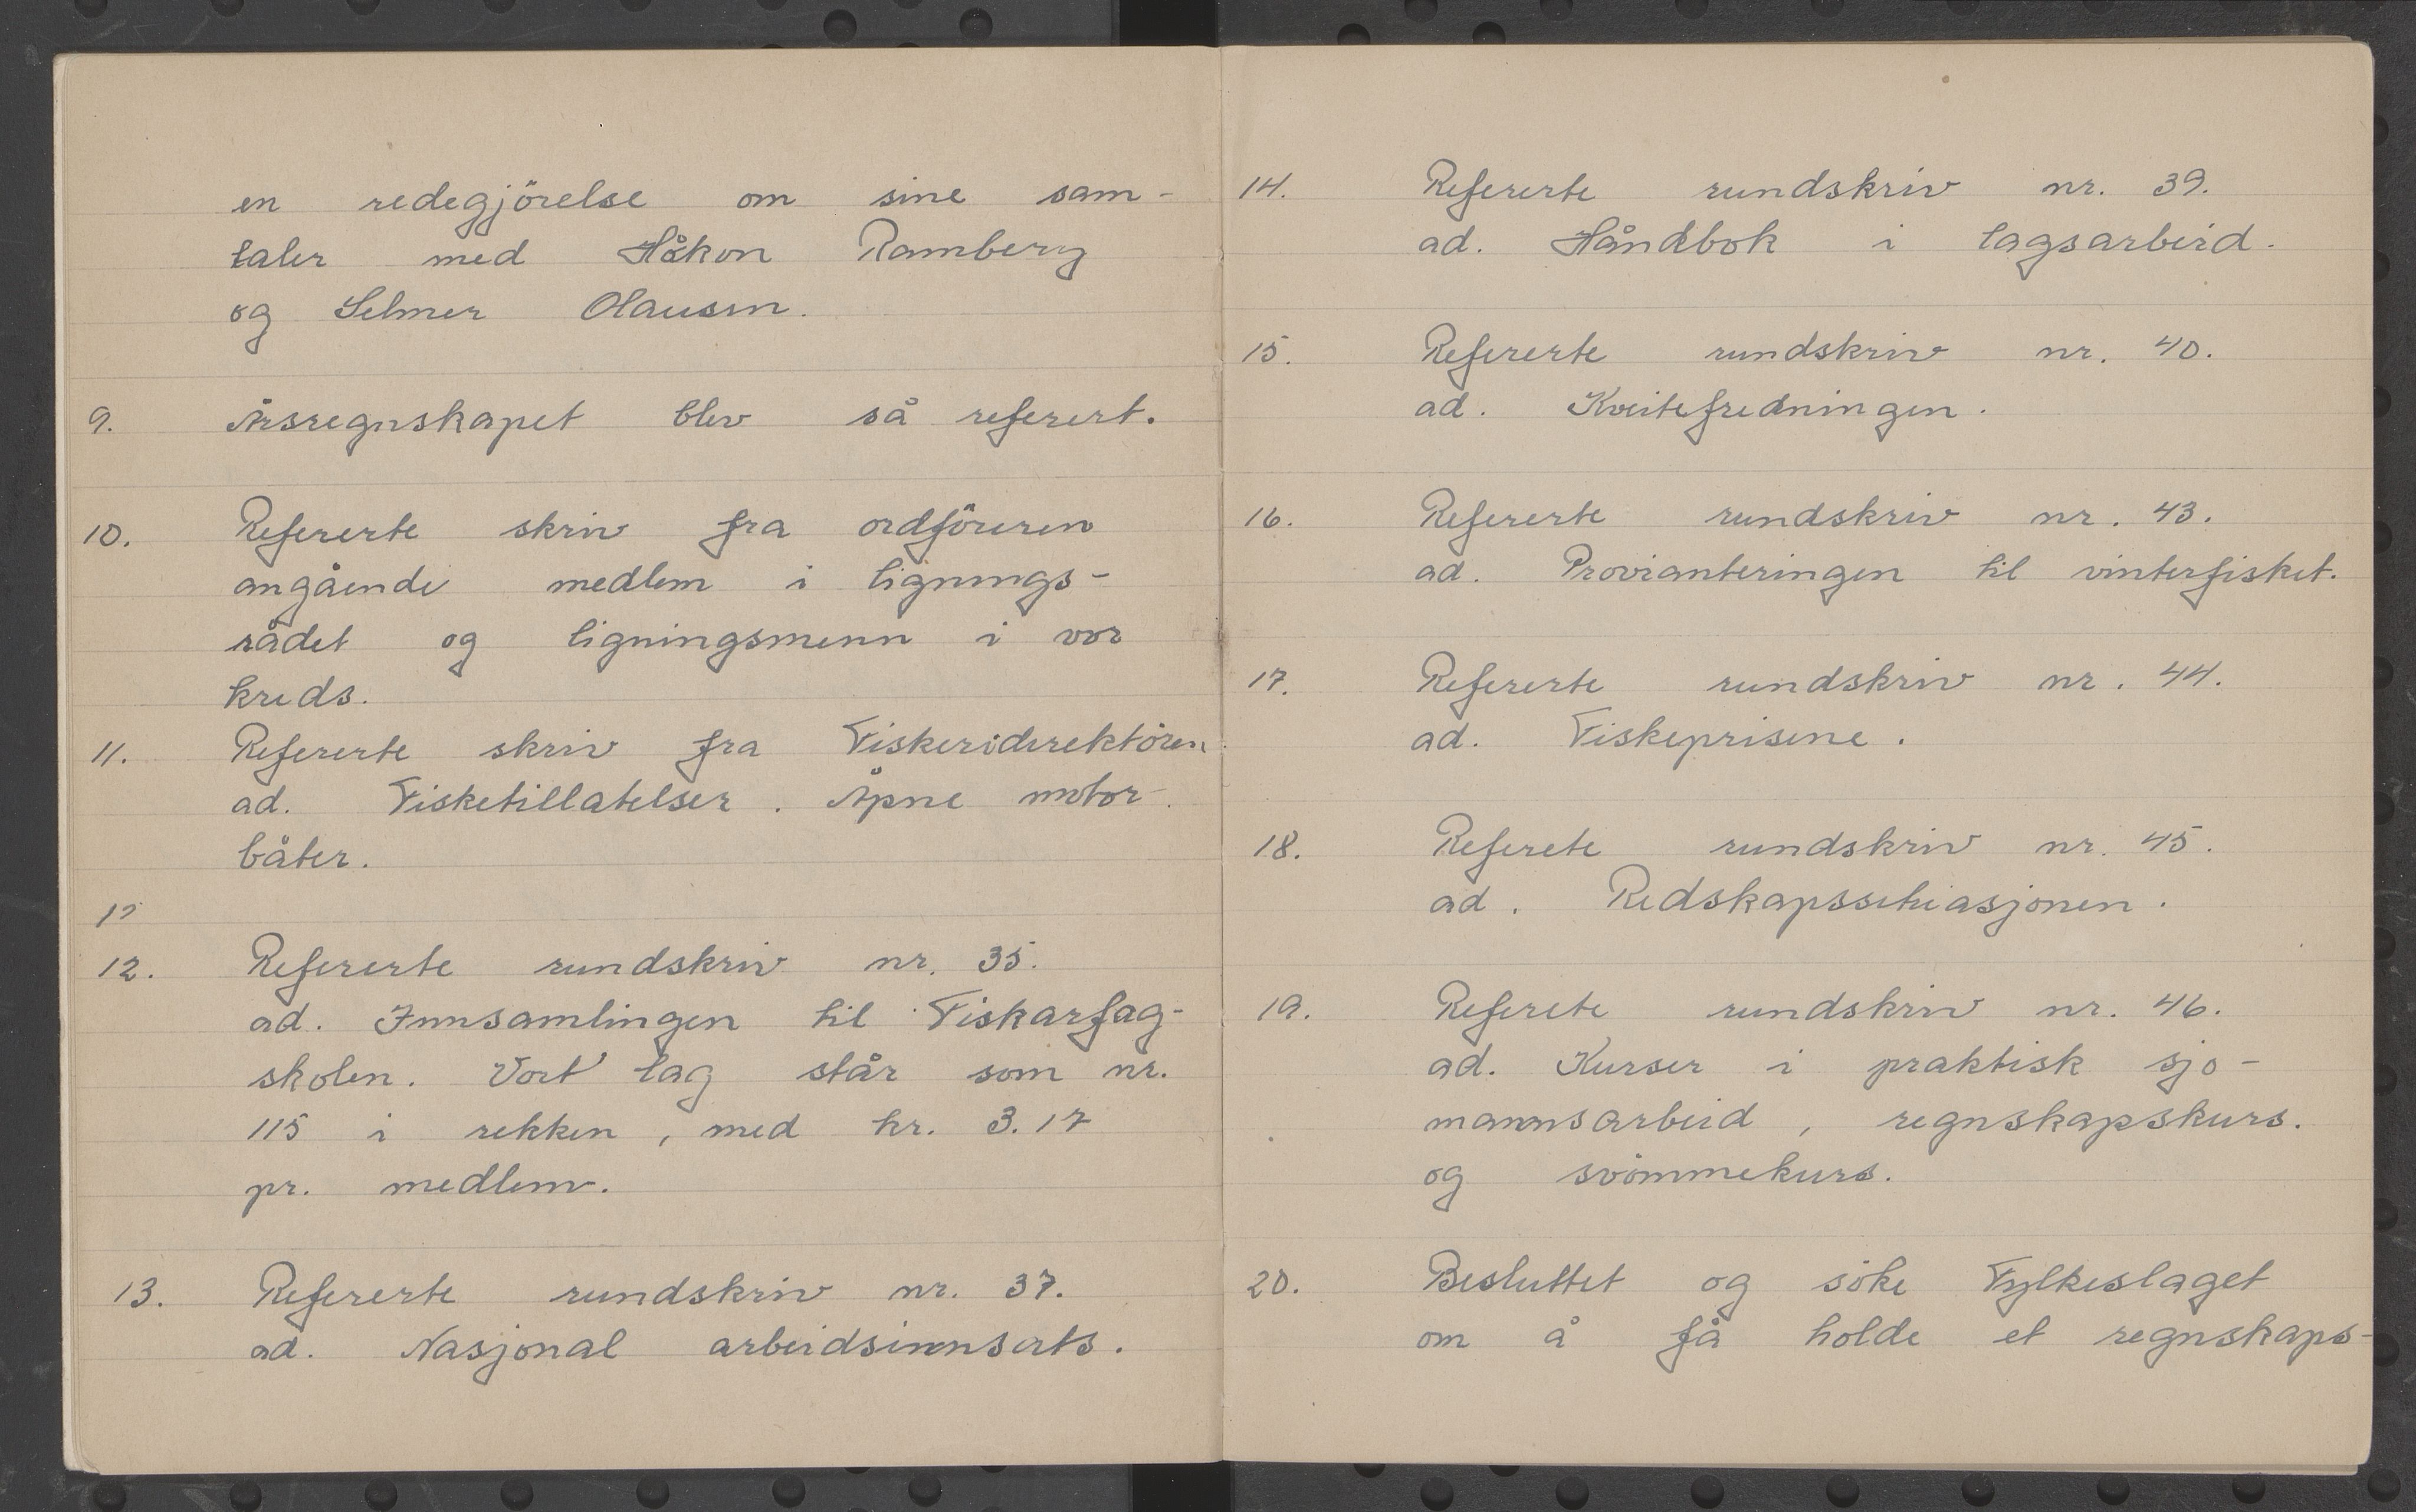 en redegjörelse om sine sam-
taler med Håkon Ramberg
og Selmer Olausen.
9. Årsregnskapet blev så referert.
10. Refererte skriv fra ordföreren
angående medlem i lignings-
rådet og ligningsmenn i vor
kreds.
11. Refererte skriv fra Fiskeridirektören
ad. Fisketillatelser. Åpne motor-
båter.
12
12. Refererte rundskriv nr. 35.
ad. Innsamlingen til Fiskarfag-
skolen. Vort lag står som nr.
115 i rekken, med kr. 3.17
pr. medlem.
13. Refererte rundskriv nr. 37.
ad. Nasjonal arbeidsinnsats.
14. Refererte rundskriv nr. 39.
ad. Håndbok i lagsarbeid.
15. Refererte rundskriv nr. 40.
ad. Kveitefredningen.
16. Refererte rundskriv nr. 43.
ad. Provianteringen til vinterfisket.
17. Refererte rundskriv nr. 44.
ad. Fiskeprisene.
18. Referete rundskriv nr. 45.
ad. Redskapssituasjonen.
19. Referete rundskriv nr. 46.
ad. Kurser i praktisk sjo-
mannsarbeid, regnskapskurs.
og svömmekurs.
20. Besluttet og söke Fylkeslaget
om å få holde et regnskaps-